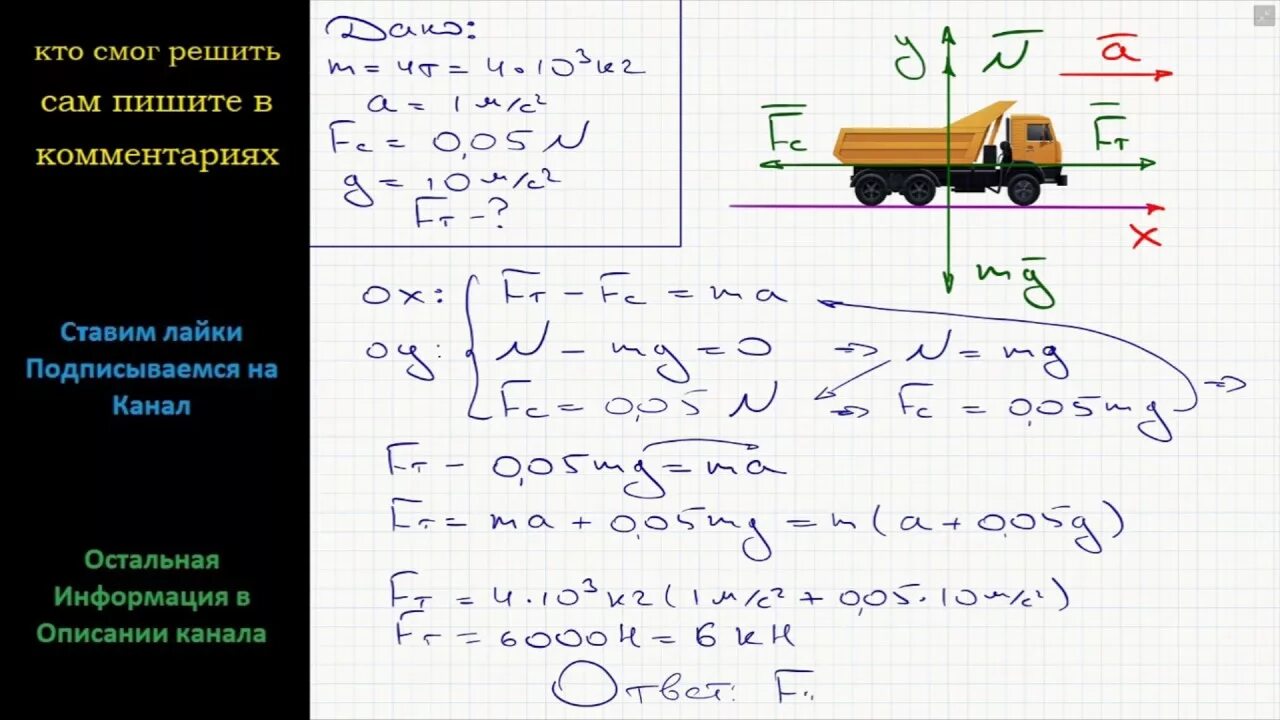 кто смог решить
сам пишите в
комментариях
Ставим лайки
Подписываемся на
Канал
Остальная
Информация в
Описании канала
Дано:
m = 4т = 4·10³кг
a = 1 м/с²
Fс = 0,05 N
g = 10 м/с²
Fт - ?
y
N̅
a̅
F̅с
F̅т
x
mg̅
ox: Fт - Fс = ma
oy: N - mg = 0 => N = mg
Fс = 0,05 N => Fс = 0,05mg =>
Fт - 0,05mg = ma
Fт = ma + 0,05mg = m(a + 0,05g)
Fт = 4·10³кг(1м/с² + 0,05·10м/с²)
Fт = 6000Н = 6 кН
Ответ: F..